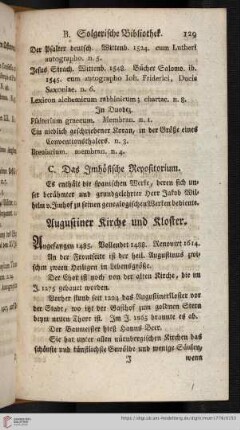 B. Solgerische Bibliothek. 129
Der Psalter deutsch. Wittenb. 1524. cum Lutheri
autographo. n. 5.
Jesus Sirach. Wittenb. 1548. Bücher Salomo. ib.
1545. cum autographo Joh. Friderici, Ducis
Saxoniae. n. 6.
Lexicon alchemicum rabbinicum; chartac. n. 8.
In Duodez.
Psalterium graecum. Membran. n. 1.
Ein niedlich geschriebener Koran, in der Größe eines
Conventionsthalers. n. 3.
Breviarium. membran. n. 4.
C. Das Imhofische Repositorium.
Es enthält die spanischen Werke, deren sich un-
ser berühmter und grundgelehrter Herr Jakob Wil-
helm v. Imhof zu seinen genealogischen Werken bediente.
Augustiner Kirche und Kloster.
Angefangen 1485. Vollendet 1488. Renovirt 1614.
An der Frontseite ist der heil. Augustinus zwi-
schen zween Heiligen in Lebensgröße.
Der Chor ist noch von der alten Kirche, die an.
J. 1275 gebauet worden.
Vorher stund seit 1224 das Augustinerkloster vor
der Stadt, wo itzt der Gasthof zum goldnen Stern
beym neuen Thore ist. Im J. 1265 brannte es ab.
Der Baumeister hieß Hanns Beer.
Sie hat unter allen nürnbergischen Kirchen das
schönste und künstlichste Gewölbe und wenige Säulen,
J wenn